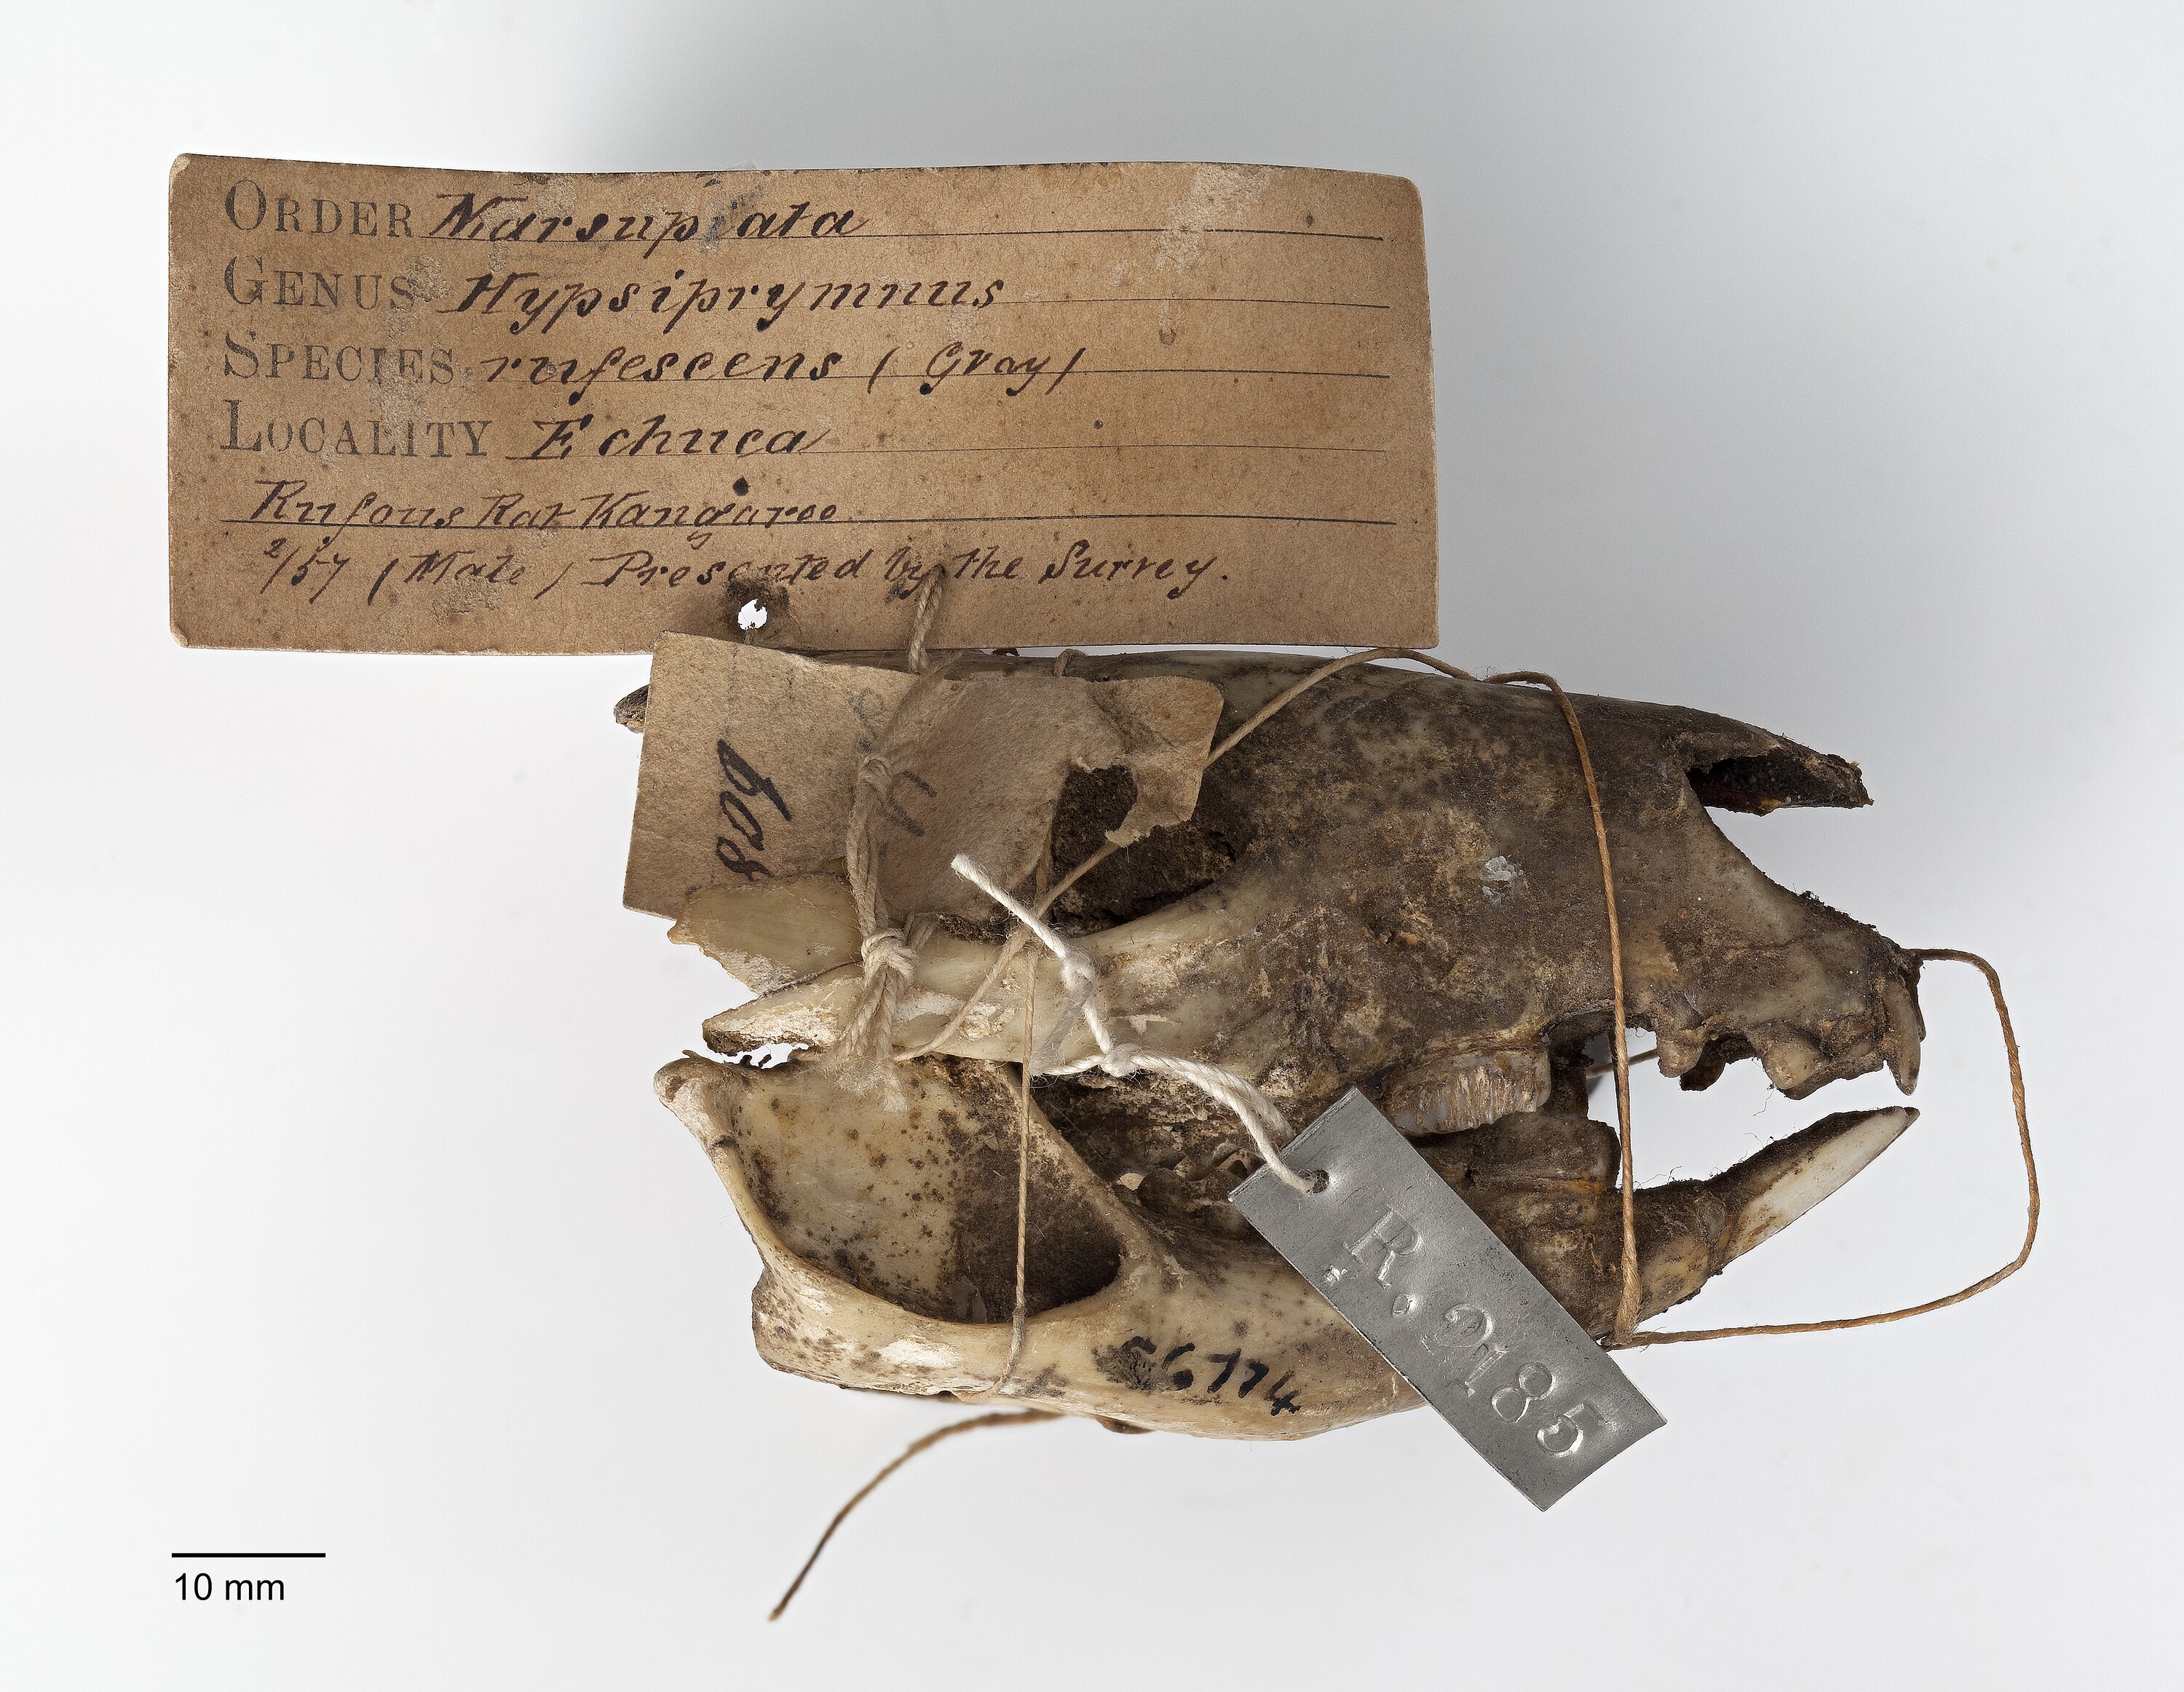 ORDER Marsupiata
GENUS Hypsiprymnus
SPECIES rufescens (Gray)
LOCALITY Echuca
Rufous Rat Kangaroo
2/57 (Male) Presented by the Survey.
R. 9185
10 mm